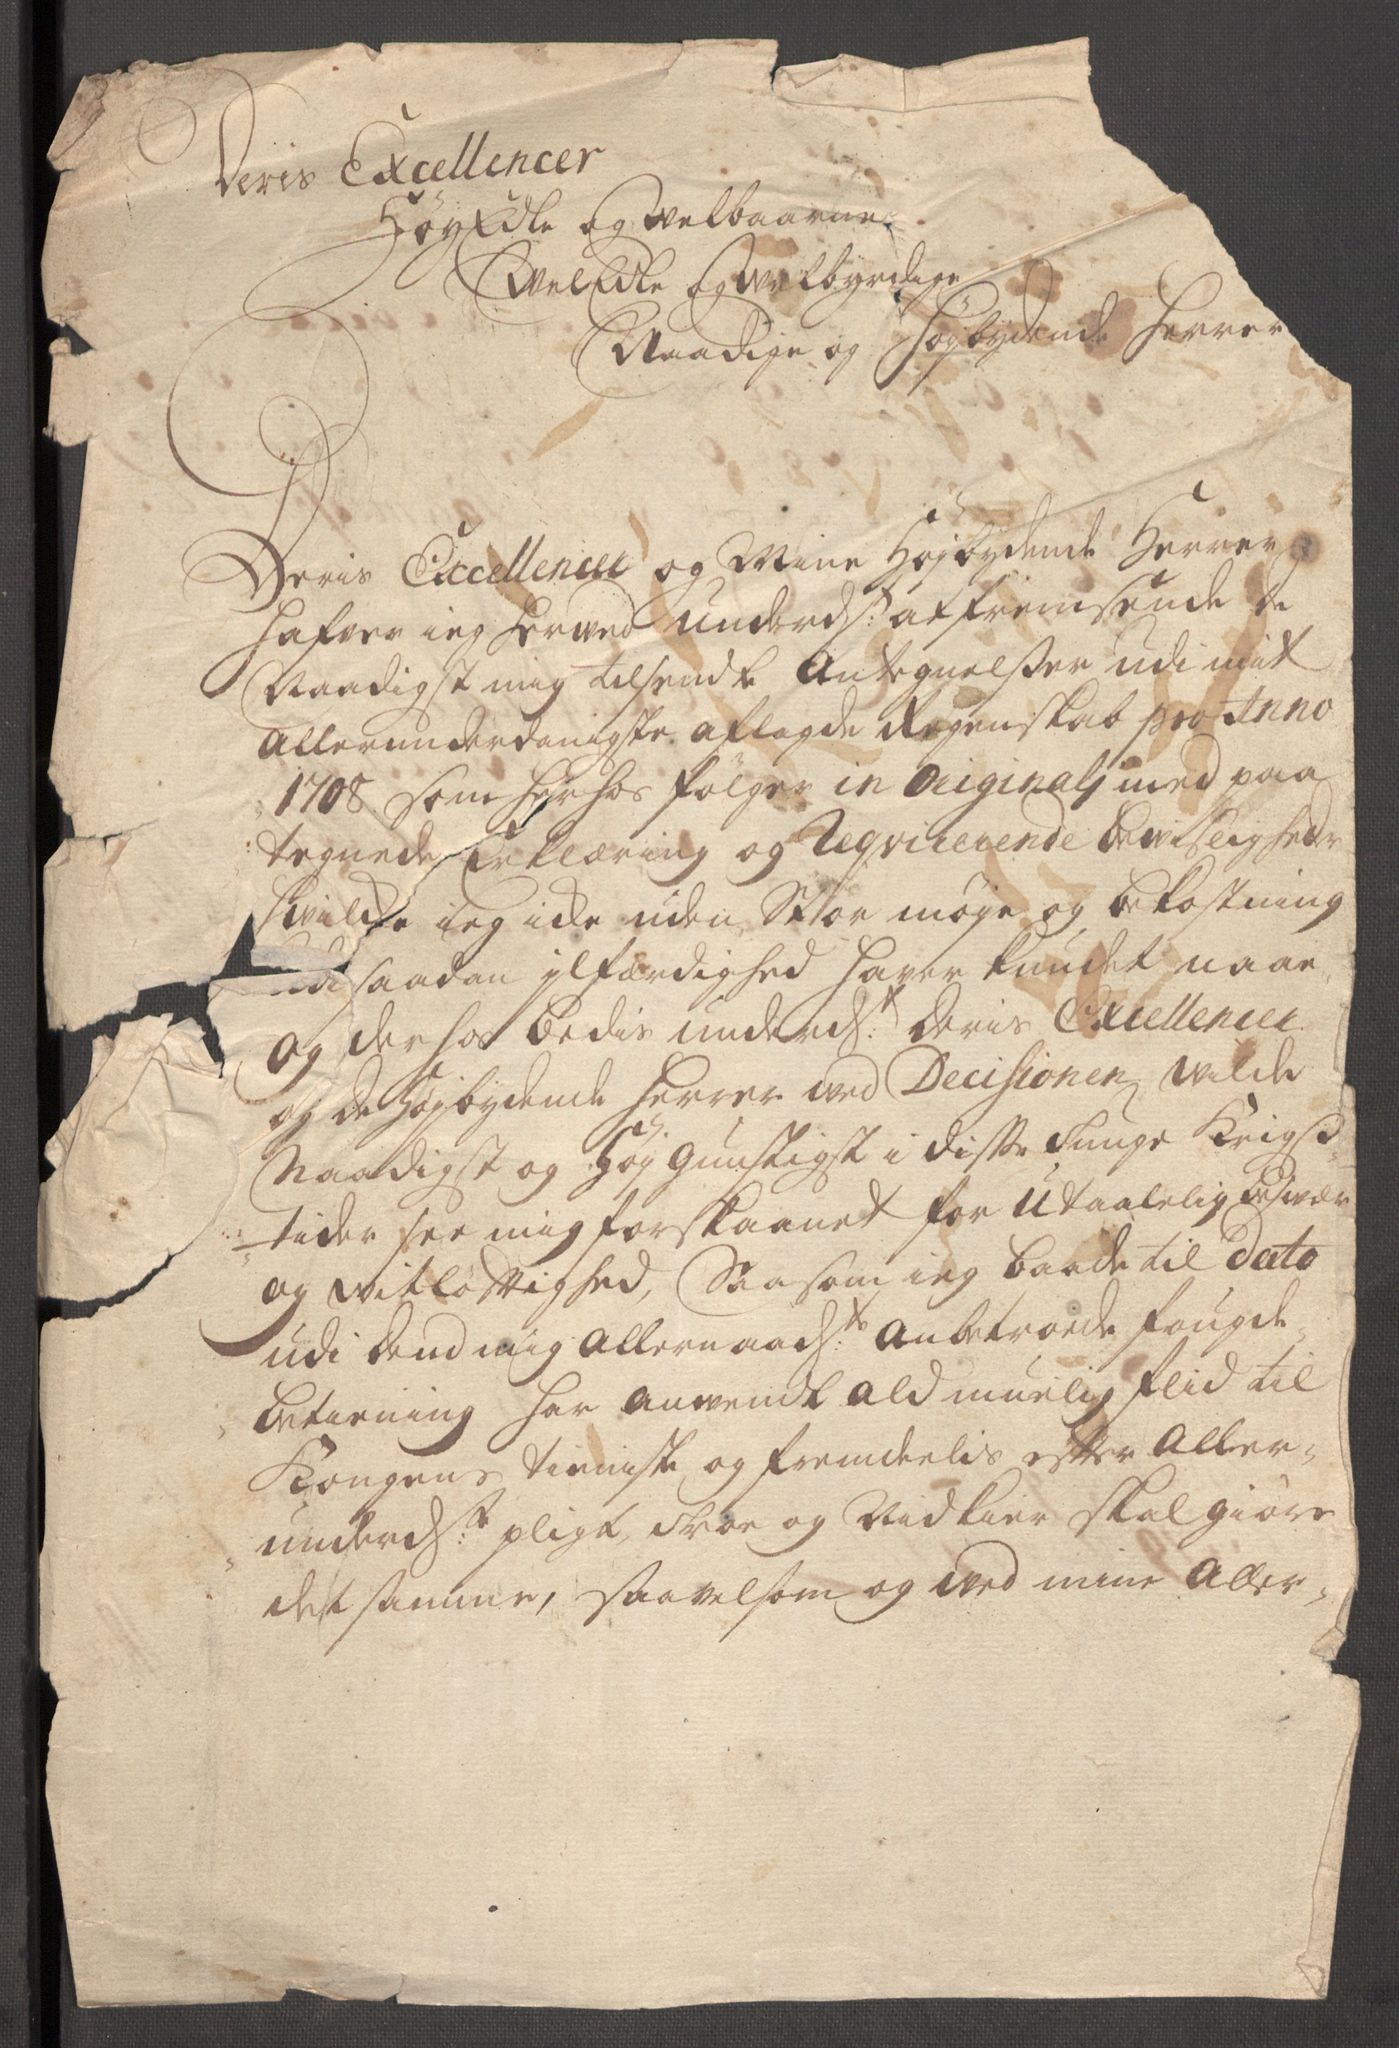 Deris Excellencer
HöyEdle og welbaarne
WelEdle og welbyrdige
Naadige og Höybydende Herrer
Deris Excellencer og Mine Höjbydende Herrer
hafver ieg herved underdst: at fremsende de
Naadigst mig tilsendte Antegnelser udi mit
Allerunderdanigste aflagde Regenskab pro Anno
1708 som herhos fölger in Originalj med paa
tegnede Erklæring og Reqvirerende bevisligheder
hvilke ieg icke uden Stor möye og bekostning
udi saadan ylfærdighed haver kundet naae,
og derhos bedis underdst: Deris Excellencer
og de Höjbydende Herrer ved Decisionen wilde
Naadigst og Höj gunstigst i disse tunge Krigs-
tider see mig forskaanet for Utaalelig besvær
og vitlöftighed, Saasom ieg baade til Dato
udi dend mig Allernaadste: Anbetroede fougde-
betiening har anvendt ald muelig flid til
Kongens tieniste og fremdeelis efter Aller-
underdst: pligt, troe og Nidkier skal giöre
det samme, saavelsom og ved mine Aller-